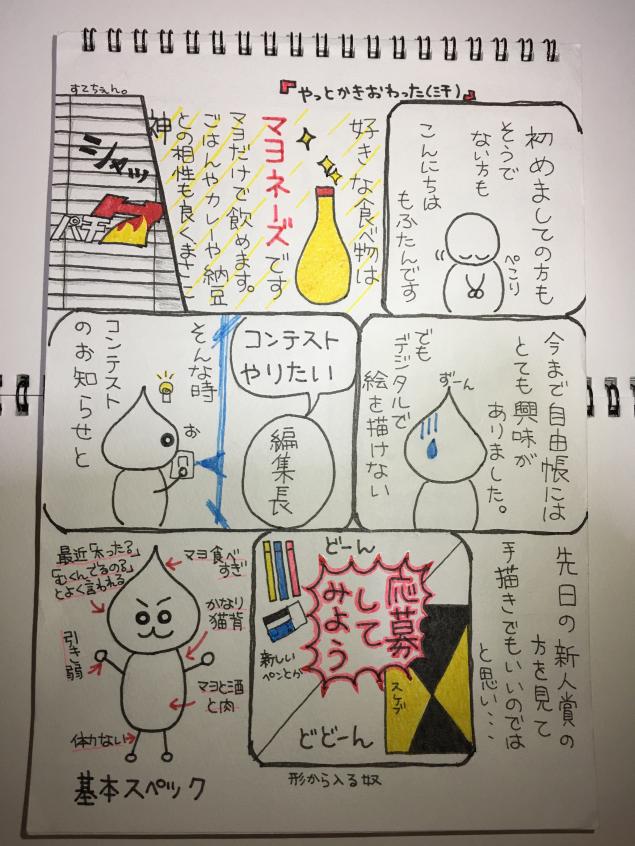 『やっとかきおわった(汗)』
初めましての方も
そうで
ない方も
こんにちは
もふたんです
ぺこり
好きな食べ物は
マヨネーズです
マヨだけで飲めます。
ごはんやカレーや納豆
との相性も良くまさに
神
すてちぇん。
シャッ
パチ
今まで自由帳には
とても興味が
ありました。
ずーん
でも
デジタルで
絵を描けない
コンテスト
やりたい
編集長
そんな時
お
コンテスト
のお知らせと
先日の新人賞の
方を見て
手描きでもいいのでは
と思い…
どーん
応募
して
みよう
新しい
ペンとか
スケブ
どどーん
形から入る奴
マヨ食べ
すぎ
最近「太った?」
「むくんでるの?」
とよく言われる
かなり
猫背
引き
弱
マヨと酒
と肉
体力ない
基本スペック